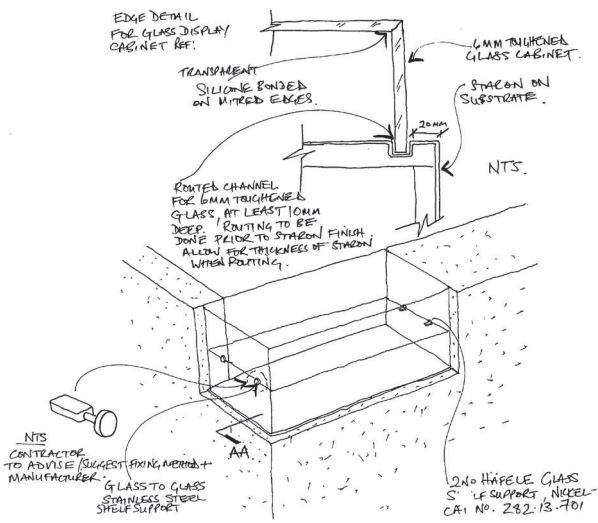 EDGE DETAIL
FOR GLASS DISPLAY
CABINET REF:
6MM TOUGHENED
GLASS CABINET.
TRANSPARENT
SILICONE BONDED
ON MITRED EDGES.
STARON ON
SUBSTRATE.
20MM
NTS.
ROUTED CHANNEL
FOR 6MM TOUGHENED
GLASS, AT LEAST 10MM
DEEP. ROUTING TO BE
DONE PRIOR TO STARON FINISH.
ALLOW FOR THICKNESS OF STARON
WHEN ROUTING.
NTS
CONTRACTOR
TO ADVISE/SUGGEST FIXING METHOD +
MANUFACTURER.
AA
GLASS TO GLASS
STAINLESS STEEL
SHELF SUPPORT
2NO HÄFELE GLASS
S LF SUPPORT, NICKEL-
CAT NO. 282.13.701